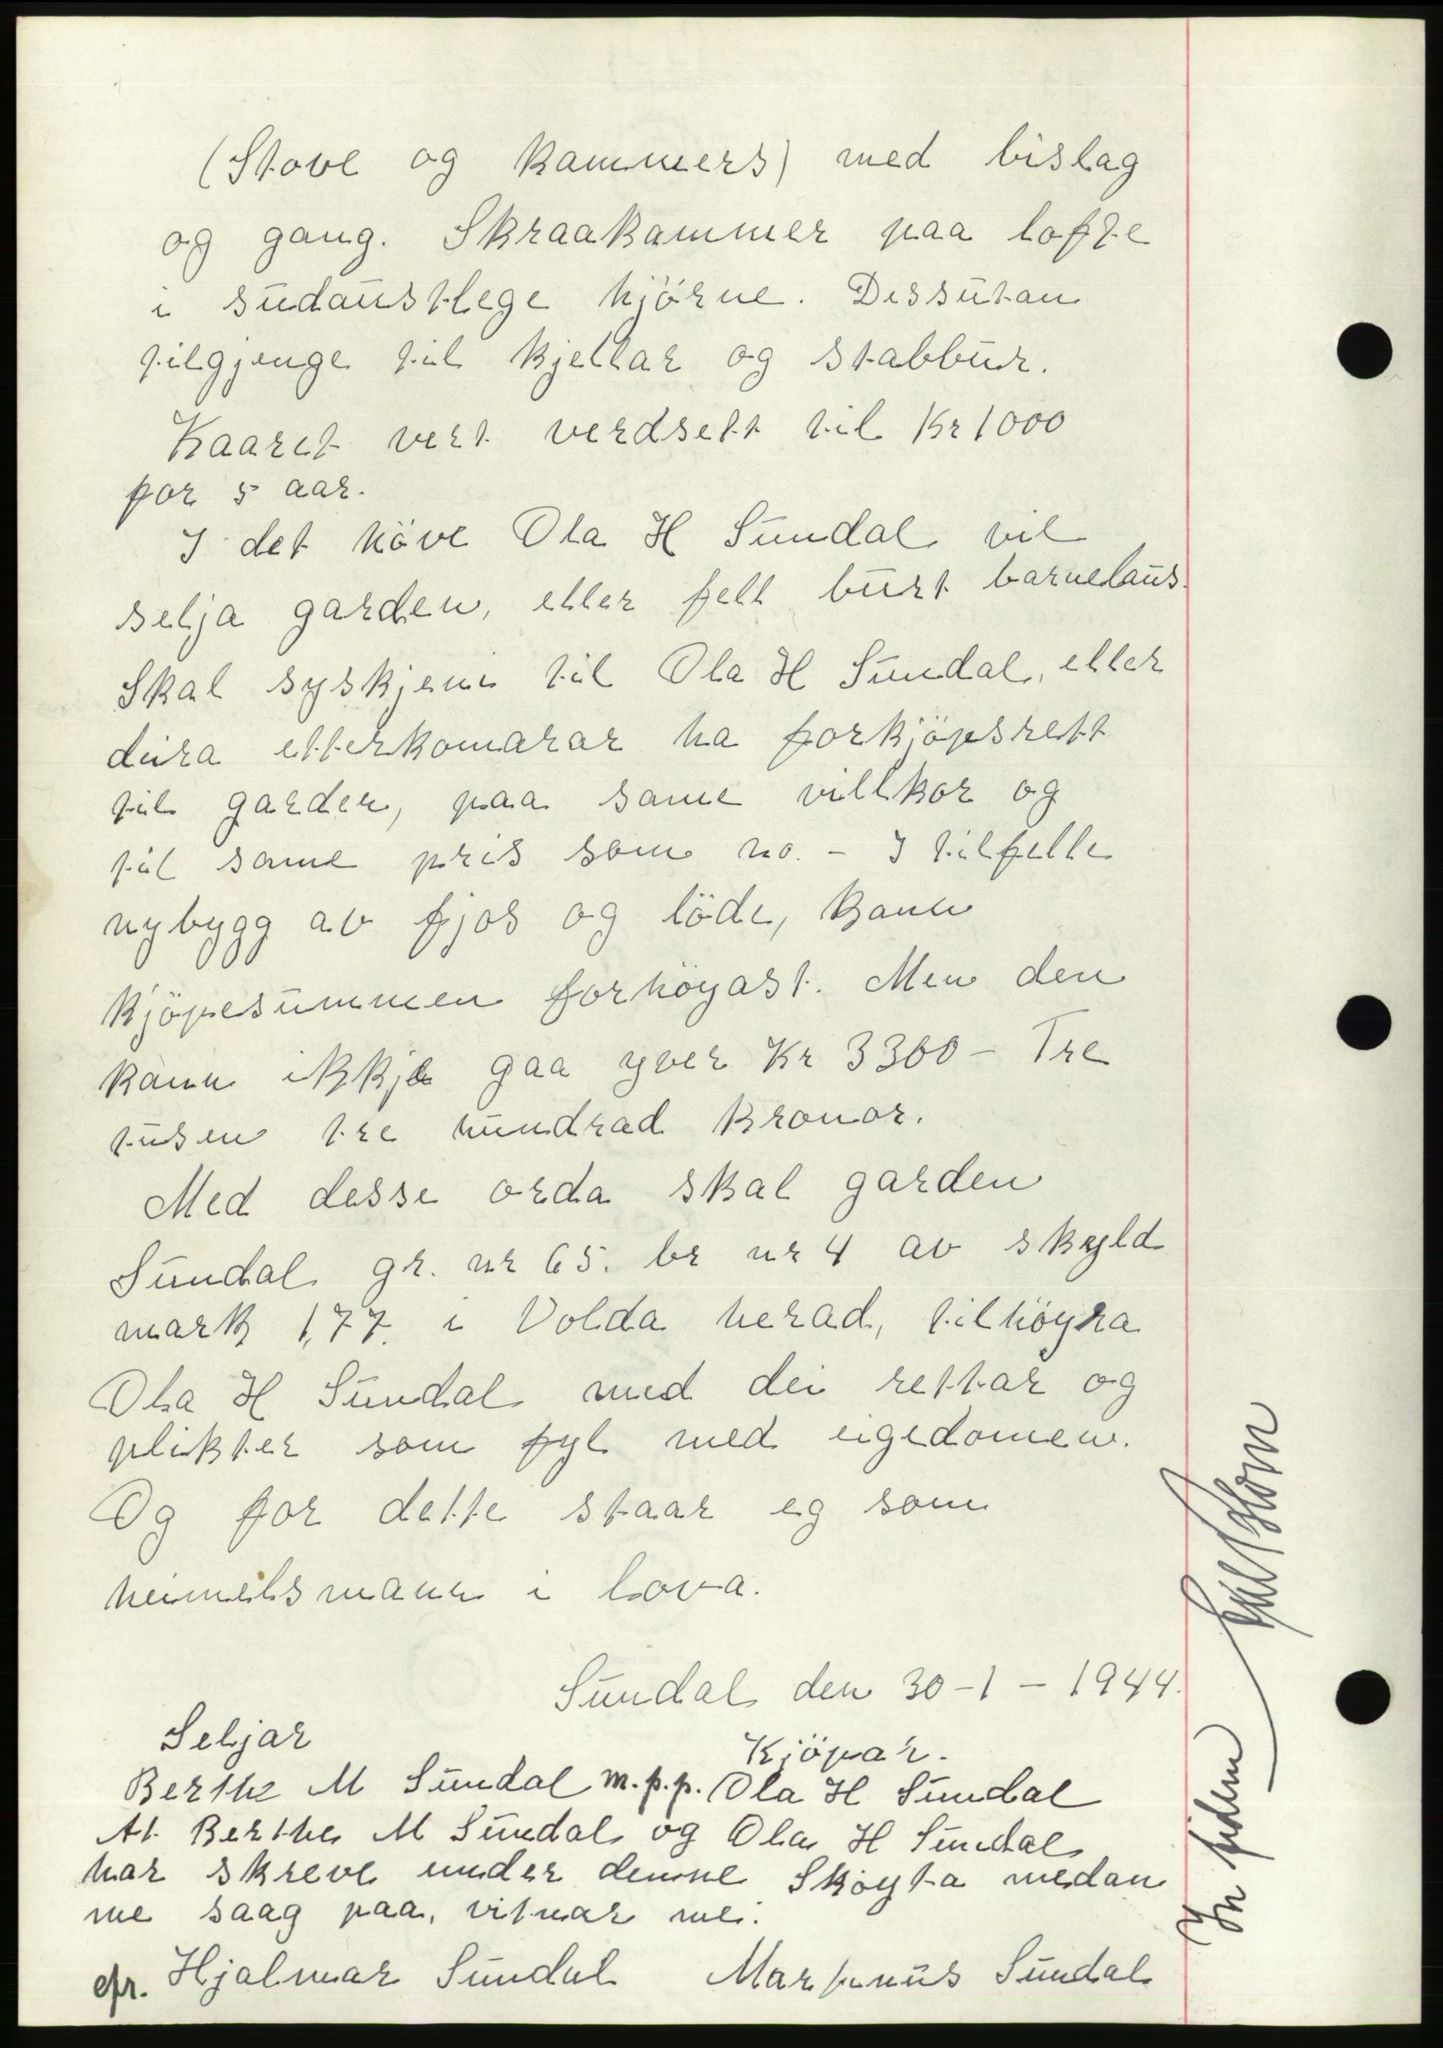 (Stove og kammers) med bislag
og gang. Skraakammer paa lofte
i sudaustlege hjörne. Dessutan
tilgjenge til kjellar og stabbur.
Kaaret vert verdsett til Kr 1000
for 5 aar.
I det höve Ola H Sundal vil
selja garden, eller fell burt barnelaus.
Skal syskjeni til Ola H Sundal, eller
deira etterkomarar ha forkjöpsrett
til garden, paa same villkor og
til same pris som no. – I tilfelle
nybygg av fjos og löde, kann
kjöpesummen forhöyast. Men den
kann ikkje gaa yver Kr 3300 – Tre
tusen tre hundrad kronor.
Med desse orda skal garden
Sundal gr. nr 65. br nr 4 av skyld
mark 1,77. i Volda herad, tilhöyra
Ola H Sundal med dei rettar og
plikter som fyl med eigedomen.
Og for dette staar eg som
heimelsmann i lova.
Sundal den 30-1-1944.
Seljar
Kjöpar.
Berthe M Sundal m.p.p. Ola H Sundal
At Berthe M Sundal og Ola H Sundal
har skreve under denne Sköyta medan
me saag paa, vitnar me:
efr. Hjalmar Sundal Martinus Sundal
In fidem